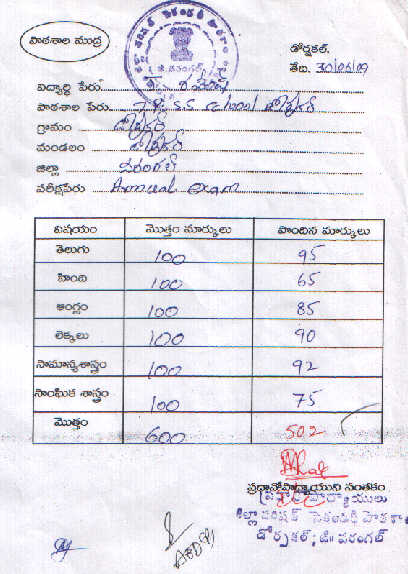 పాఠశాల ముద్ర
డోర్నకల్.
తేది. 30/04/09
విద్యార్థి పేరు
పాఠశాల పేరు Z.P.S.S School డోర్నకల్
గ్రామం డోర్నకల్
మండలం డోర్నకల్
జిల్లా వరంగల్
పరీక్షపేరు Annual Exam
విషయం మొత్తం మార్కులు పొందిన మార్కులు
తెలుగు 100 95
హింది 100 65
ఆంగ్లం 100 85
లెక్కలు 100 90
సామాన్యశాస్త్రం 100 92
సాంఘిక శాస్త్రం 100 75
మొత్తం 600 502
ప్రధానోపాధ్యాయుని సంతకం
ప్రధానోపాధ్యాయులు
జిల్లా పరిషత్ సెకండరీ పాఠశాల
డోర్నకల్; జి॥ వరంగల్